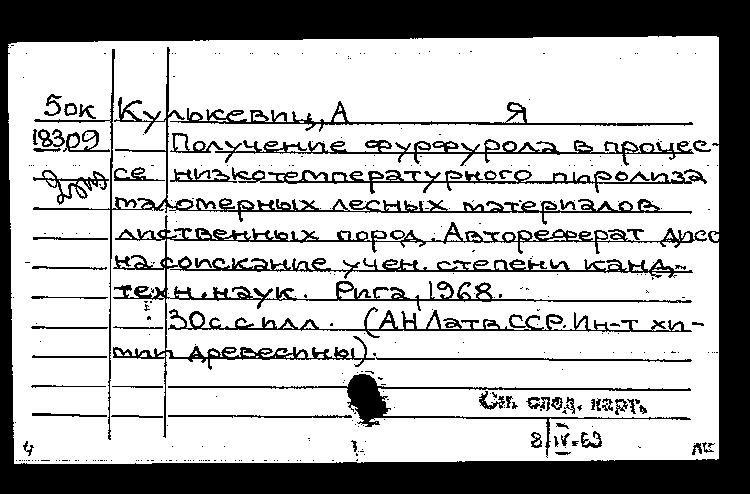 50к Кулькевиц, А Я
18309 Получение фурфурола в процес-
се низкотемпературного пиролиза
маломерных лесных материалов
лиственных пород. Автореферат дисс
на соискание учен. степени канд.
техн. наук. Рига, 1968.
30с. с илл. (АН Латв. ССР. Ин-т хи-
мии древесины).
См. след. карт.
8/IV-69
4 1